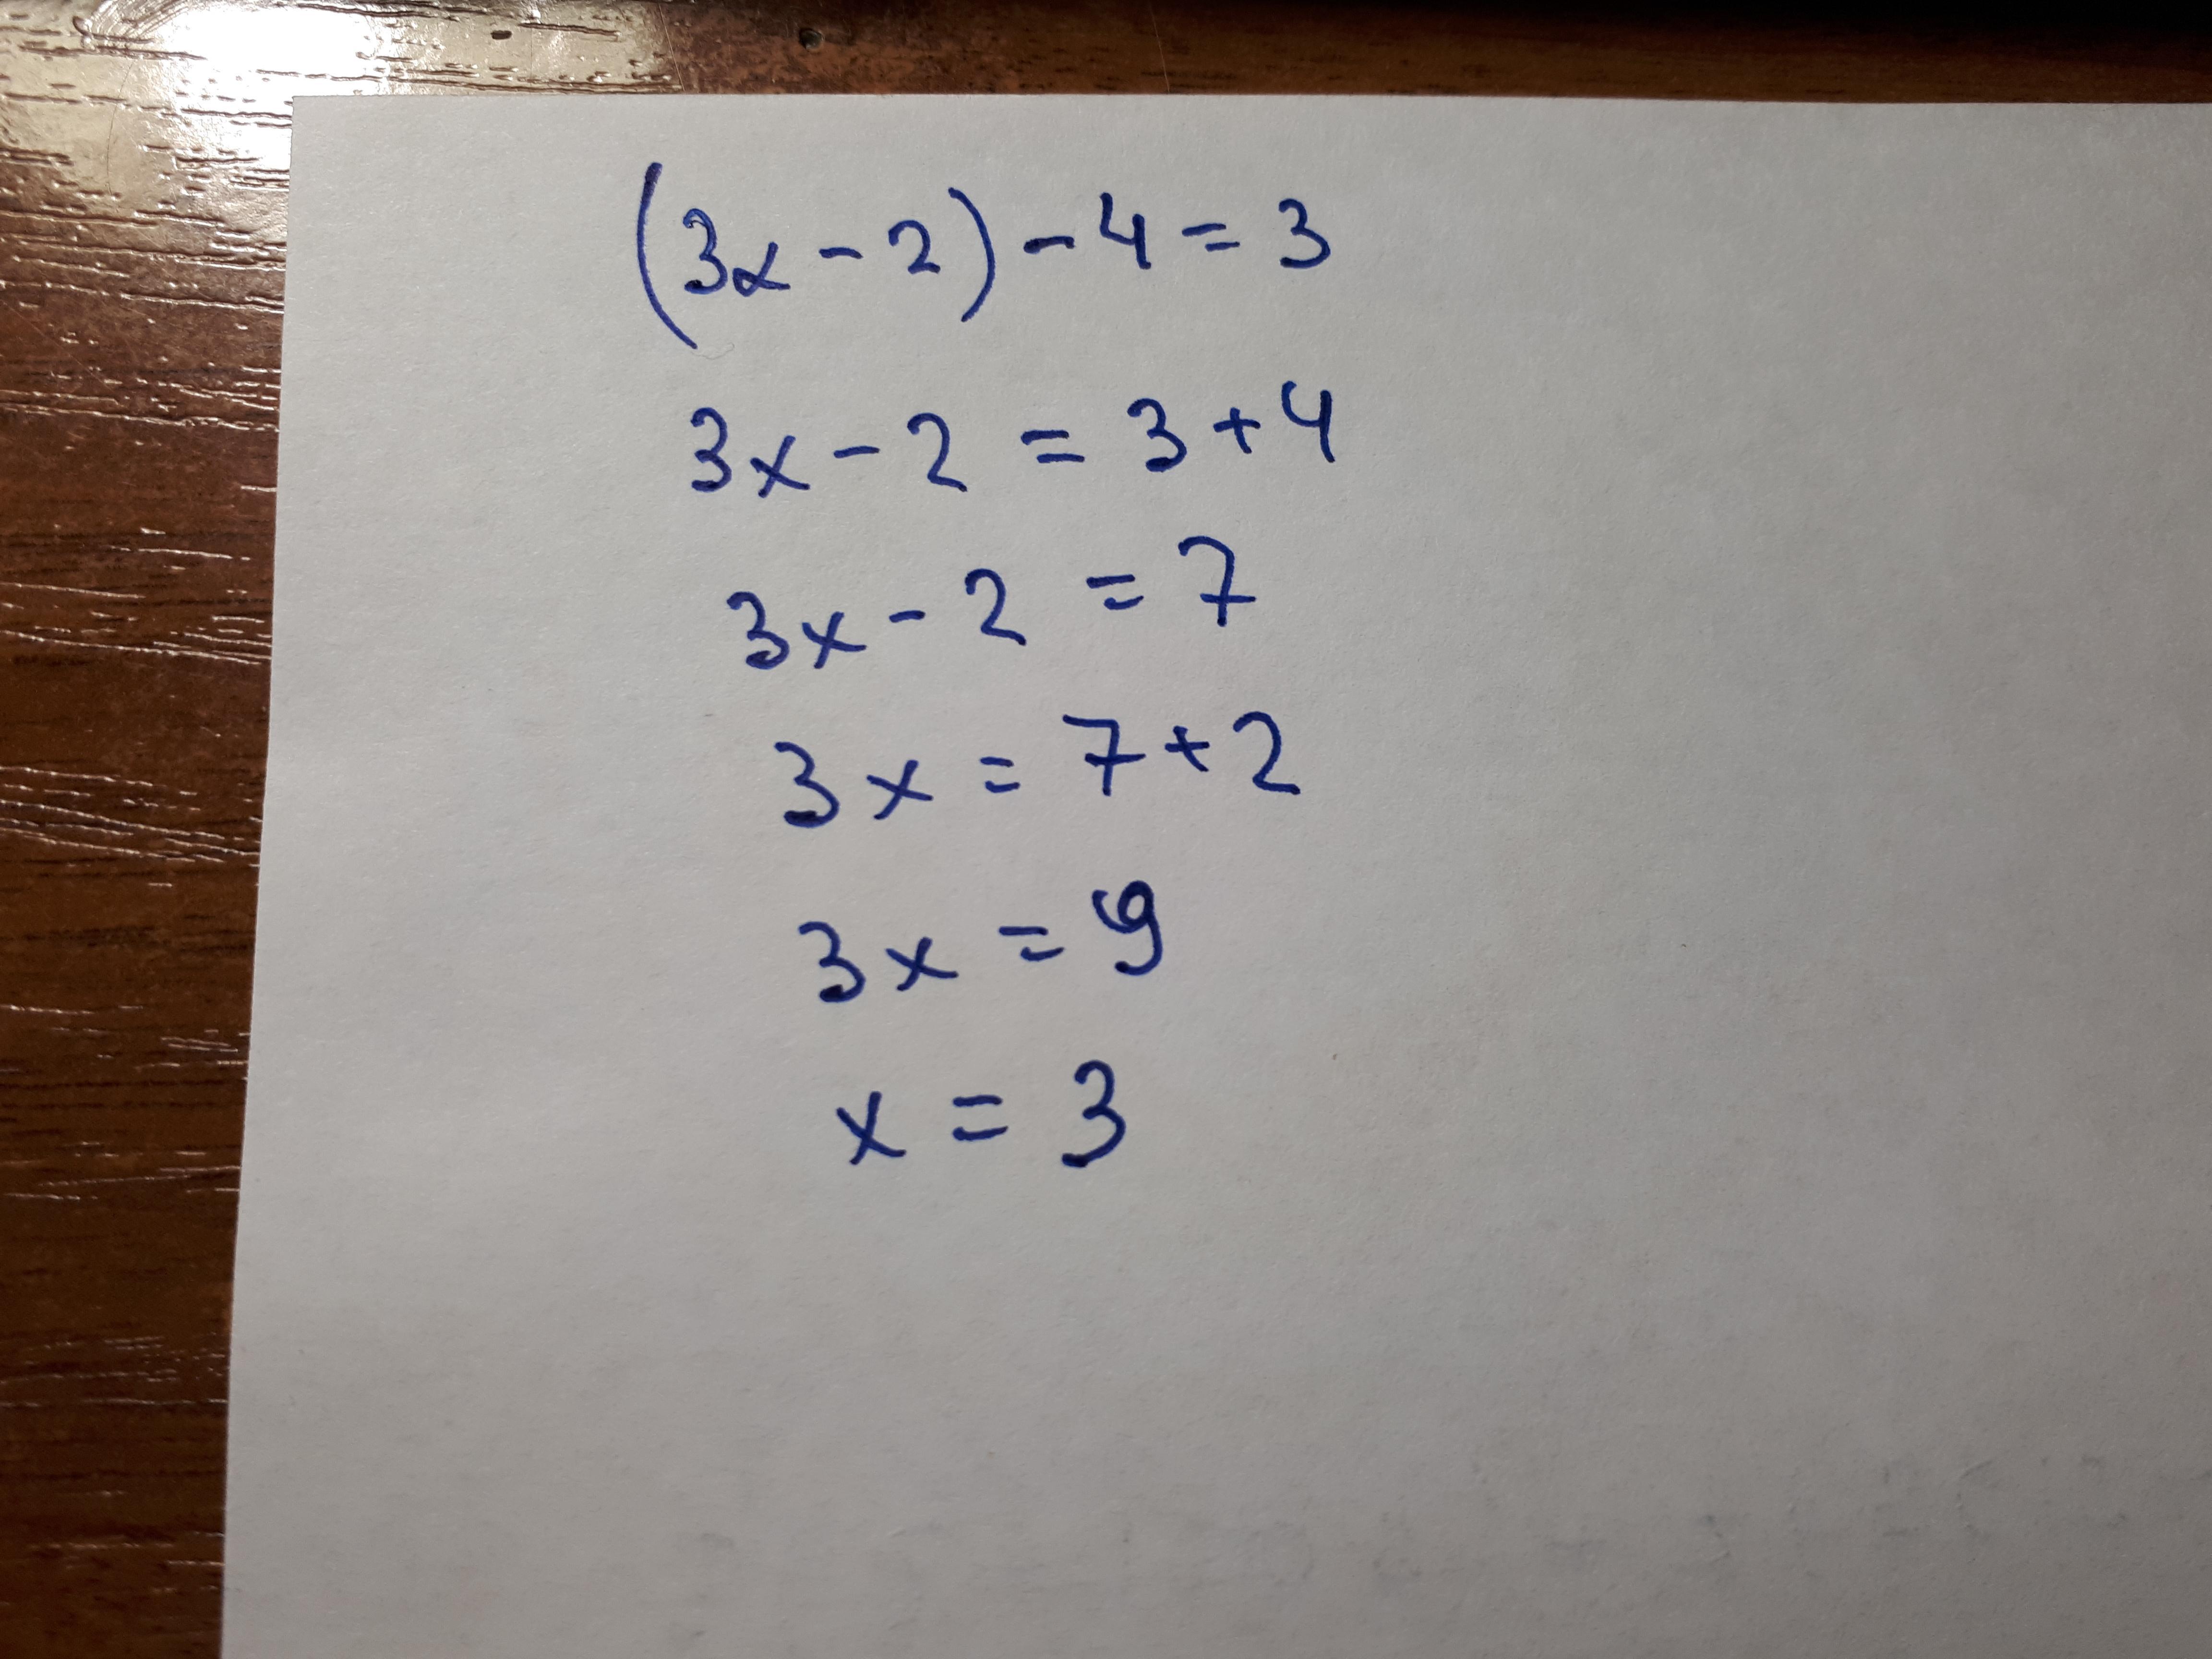 (3x - 2) - 4 = 3
3x - 2 = 3 + 4
3x - 2 = 7
3x = 7 + 2
3x = 9
x = 3